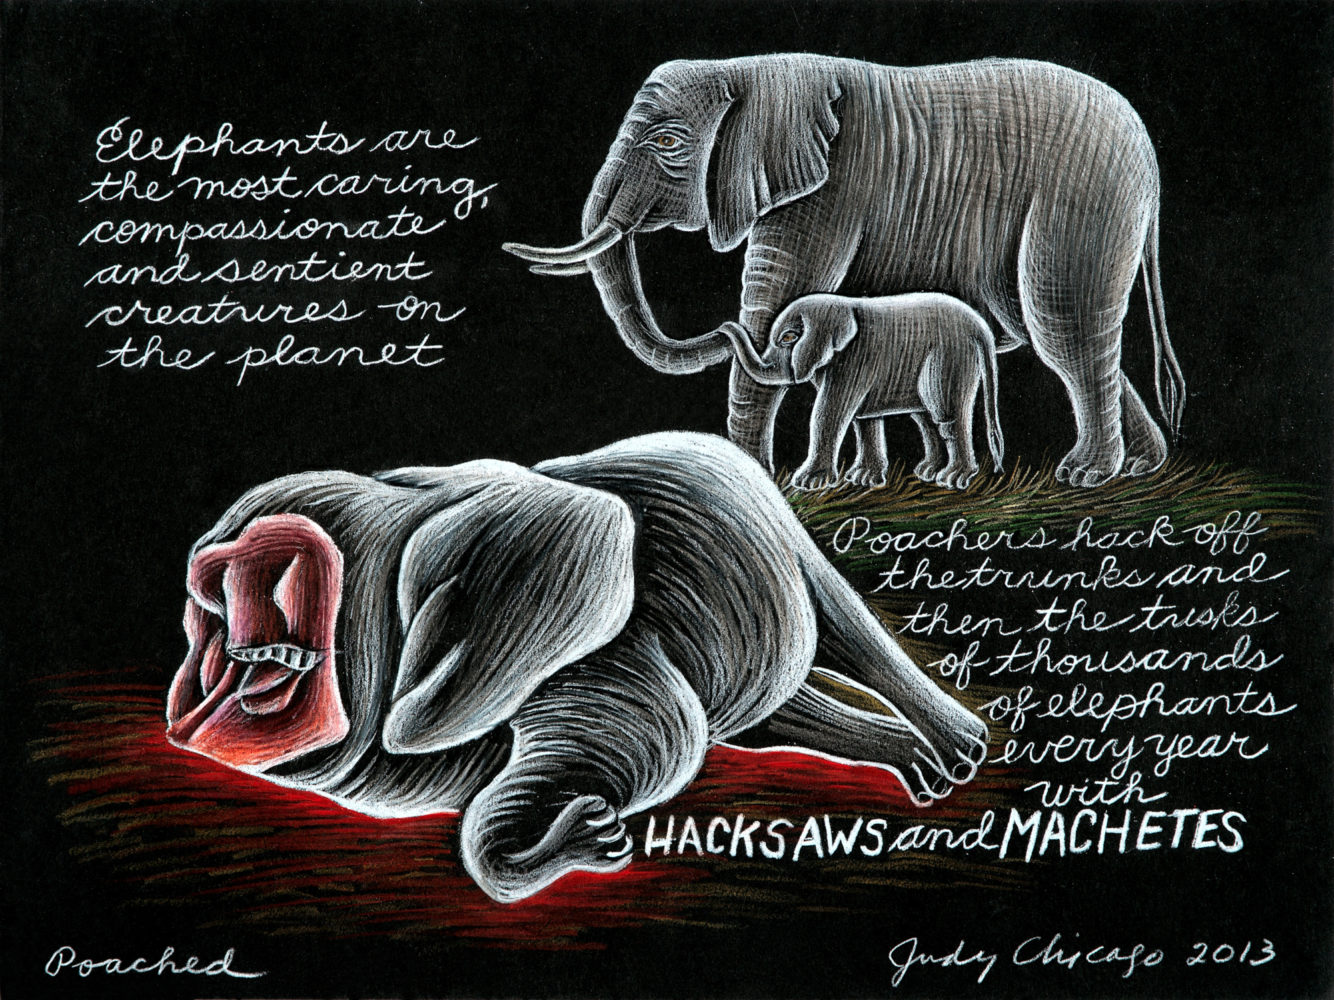 Elephants are
the most caring,
compassionate
and sentient
creatures on
the planet
Poachers hack off
the trunks and
then the tusks
of thousands
of elephants
every year
with
HACKSAWS and MACHETES
Poached
Judy Chicago 2013